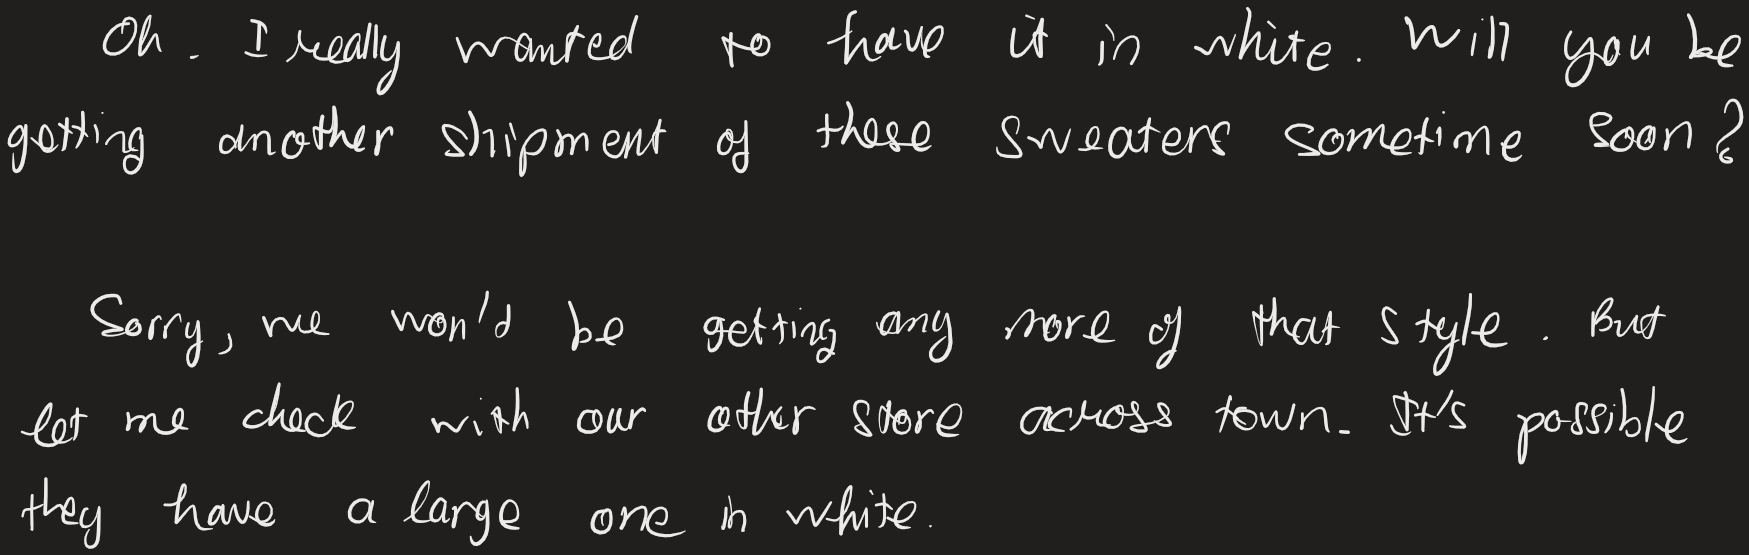 Oh. I really wanted to have it in white. Will you be
getting another shipment of these sweaters sometime soon?
Sorry, we won'd be getting any more of that style. But
let me check with our other store across town. It's possible
they have a large one in white.